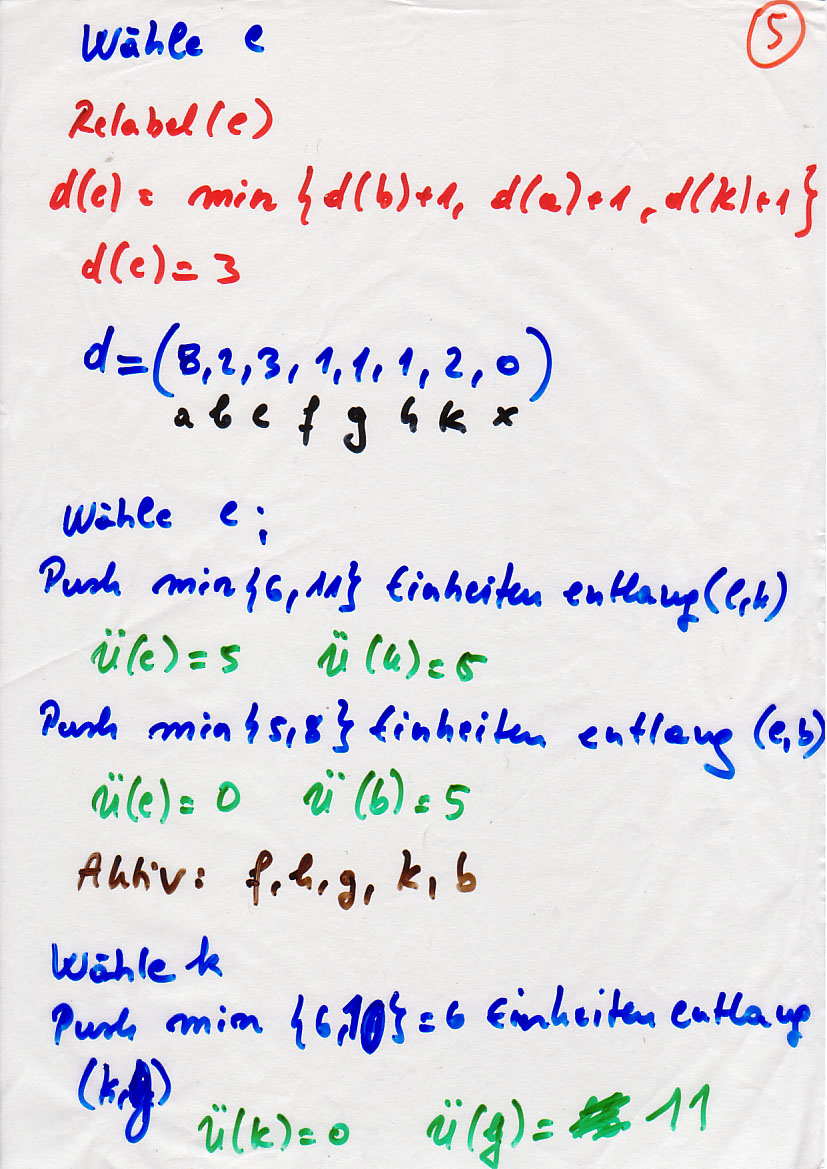 5
Wähle e
Relabel(e)
d(e) = min {d(b)+1, d(a)+1, d(k)+1}
d(e) = 3
d = (8,2,3,1,1,1,2,0)
a b e f g h k x
Wähle e;
Push min{6,11} Einheiten entlang (e,k)
ü(e) = 5 ü(k) = 6
Push min{5,8} Einheiten entlang (e,b)
ü(e) = 0 ü(b) = 5
Aktiv: f, h, g, k, b
Wähle k
Push min {6,10} = 6 Einheiten entlang
(k,g)
ü(k) = 0 ü(g) = 11